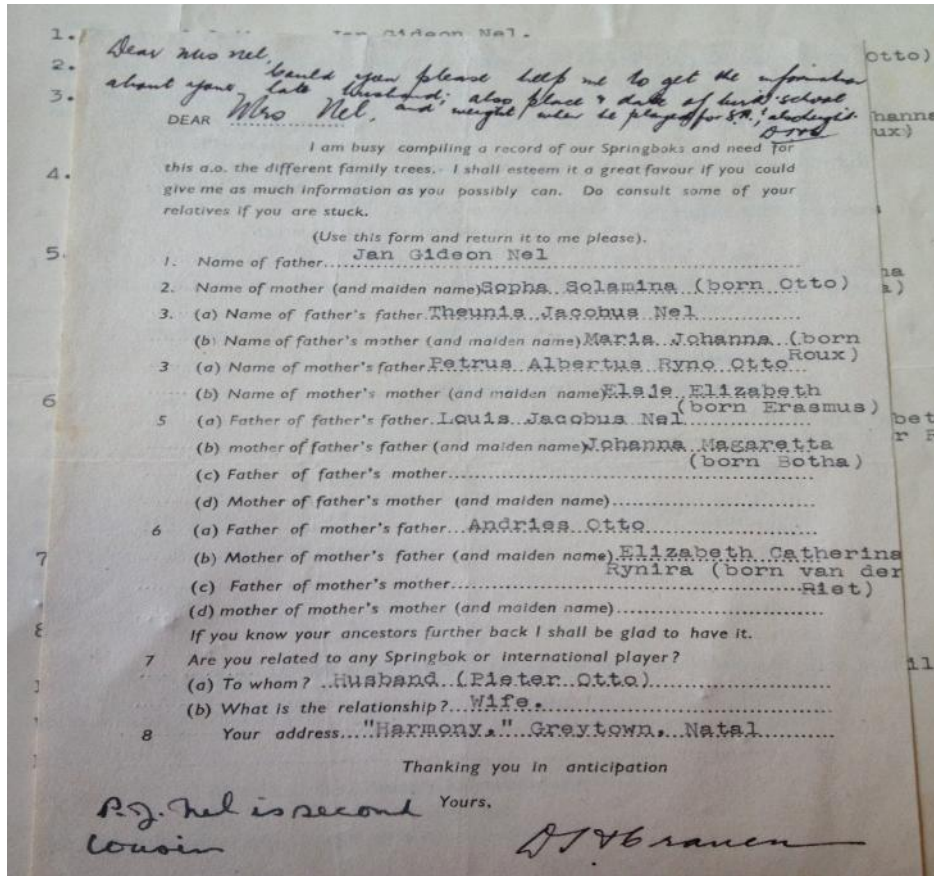 1. Jan Gideon Nel.
Dear Mrs Nel,
2. Otto)
Could you please help me to get the information
about your late husband; also place & date of birth - school
3. hanna
DEAR Mrs Nel, and weight when he played for S.A.; also height.
ux)
I am busy compiling a record of our Springboks and need for
this a.o. the different family trees. I shall esteem it a great favour if you could
4.
give me as much information as you possibly can. Do consult some of your
relatives if you are stuck.
(Use this form and return it to me please).
5.
1. Name of father....Jan Gideon Nel
2. Name of mother (and maiden name) Sopha Solamina (born Otto)
3. (a) Name of father's father. Theunis Jacobus Nel
(b) Name of father's mother (and maiden name) Maria Johanna (born
Roux)
3 (a) Name of mother's father. Petrus Albertus Ryno Otto
6
(b) Name of mother's mother (and maiden name) Elsie Elizabeth
(born Erasmus)
5 (a) Father of father's father. Louis Jacobus Nel
bet
(b) mother of father's father (and maiden name) Johanna Magaretta
(born Botha)
(c) Father of father's mother
(d) Mother of father's mother (and maiden name)
6 (a) Father of mother's father...Andries Otto
7
(b) Mother of mother's father (and maiden name) Elizabeth Catherina
Rynira (born van der
(c) Father of mother's mother
Riet)
(d) mother of mother's mother (and maiden name)
8
If you know your ancestors further back I shall be glad to have it.
7 Are you related to any Springbok or international player?
(a) To whom? Husband (Pieter Otto)
(b) What is the relationship? Wife.
8 Your address..."Harmony," Greytown, Natal
Thanking you in anticipation
Yours,
P.J. Nel is second
cousin
D H Craven